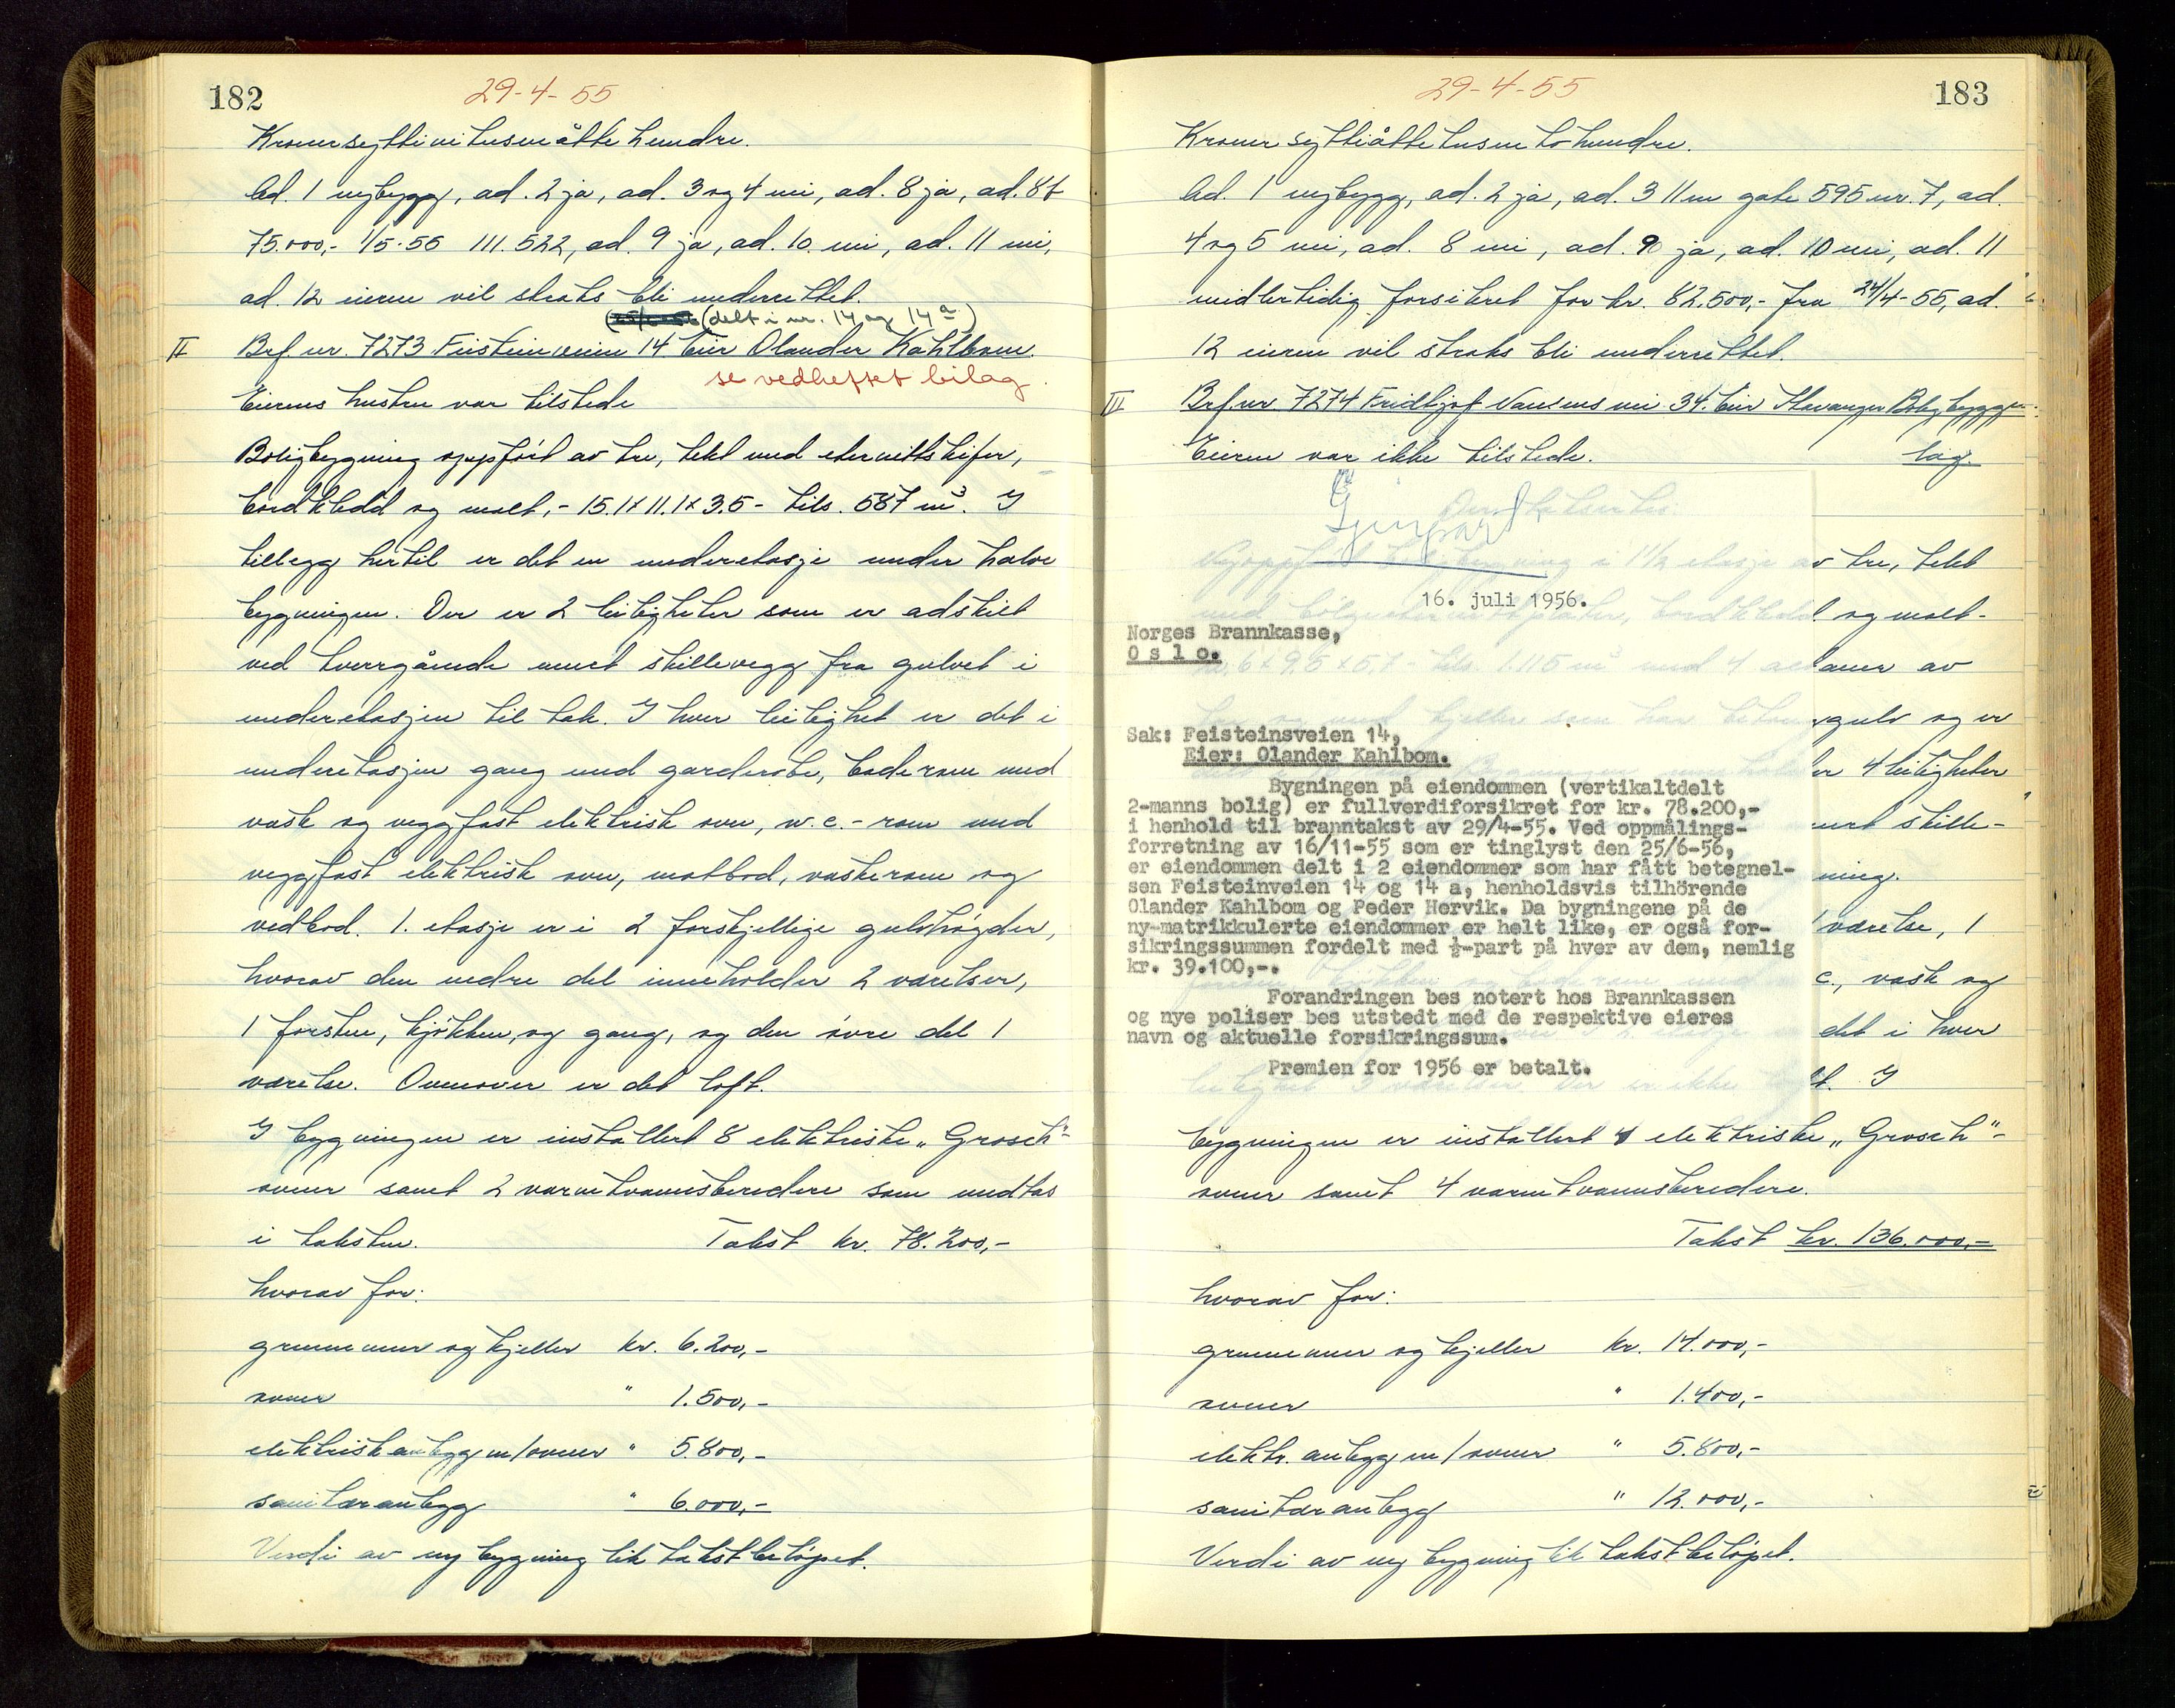 182
29-4-55
Kroner syttini tusen åtte hundre.
Ad. 1 nybygg, ad. 2 ja, ad. 3 og 4 nei, ad. 8 ja, ad. 8 f
75.000,- 1/5-55 111.522, ad. 9 ja, ad. 10. nei, ad. 11 nei,
ad. 12 eieren vil straks bli underrettet.
(delt i nr. 14 og 14 a)
II Brf. nr. 7273 Feisteinveien 14 Eier Olander Kahlbom.
se vedheftet bilag.
Eierens hustru var tilstede
Boligbygning oppført av tre, tekt med eternittskifer,
bordkledd og malt, - 15.1 x 11.1 x 3.5 - tils. 587 m³. I
tillegg hertil er det en underetasje under halve
bygningen. Der er 2 leiligheter som er adskilt
ved tverrgående muret skillevegg fra gulvet i
underetasjen til tak. I hver leilighet er det i
underetasjen gang med garderobe, baderom med
vask og veggfast elektrisk ovn, w.c.-rom med
veggfast elektrisk ovn, matbod, vaskerom og
vedbod. 1. etasje er i 2 forskjellige gulvhøgder,
hvorav den nedre del inneholder 2 værelser,
1 forstue, kjøkken, og gang, og den øvre del 1
værelse. Ovenover er det loft.
I bygningen er installert 8 elektriske "Grosch"-
ovner samt 2 varmtvannsberedere som medtas
i taksten. Takst kr. 78.200,-
hvorav for:
grunnmur og kjeller kr. 6.200,-
ovner " 1.500,-
elektrisk anlegg m/ovner " 5.800,-
sanitæranlegg " 6.000,-
Verdi av ny bygning lik takstbeløpet.
183
29-4-55
Kroner syttiåtte tusen to hundre.
Ad. 1 nybygg, ad. 2 ja, ad. 3 11 m gate 595 nr. 7, ad.
4 og 5 nei, ad. 8 nei, ad. 9 ja, ad. 10 nei, ad. 11
midlertidig forsikret for kr. 82.500,- fra 24/4-55, ad.
12 eieren vil straks bli underrettet.
III Brf nr 7274 Fridtjof Nansens vei 34. Eier Stavanger Boligbygge-
lag.
Eieren var ikke tilstede.
Gjenpart
av tre, tekt
16. juli 1956.
og malt.
Norges Brannkasse,
Oslo.
av
gulv og er
Sak: Feisteinsveien 14,
Eier: Olander Kahlbom.
4 leiligheter
Bygningen på eiendommen (vertikaltdelt
2-manns bolig) er fullverdiforsikret for kr. 78.200,-
i henhold til branntakst av 29/4-55. Ved oppmålings-
forretning av 16/11-55 som er tinglyst den 25/6-56,
er eiendommen delt i 2 eiendommer som har fått betegnel-
sen Feisteinveien 14 og 14 a, henholdsvis tilhörende
Olander Kahlbom og Peder Hervik. Da bygningene på de
ny-matrikkulerte eiendommer er helt like, er også for-
sikringssummen fordelt med ½-part på hver av dem, nemlig
kr. 39.100,-.
Forandringen bes notert hos Brannkassen
og nye poliser bes utstedt med de respektive eieres
navn og aktuelle forsikringssum.
Premien for 1956 er betalt.
skille-
værelse, 1
vask og
det i hver
I
bygningen er installert 4 elektriske "Grosch"-
ovner samt 4 varmtvannsberedere.
Takst kr. 136.000,-
hvorav for:
grunnmur og kjeller kr. 14.000,-
ovner " 1.400,-
elektr. anlegg m/ovner " 5.800,-
sanitæranlegg " 12.000,-
Verdi av ny bygning lik takstbeløpet.